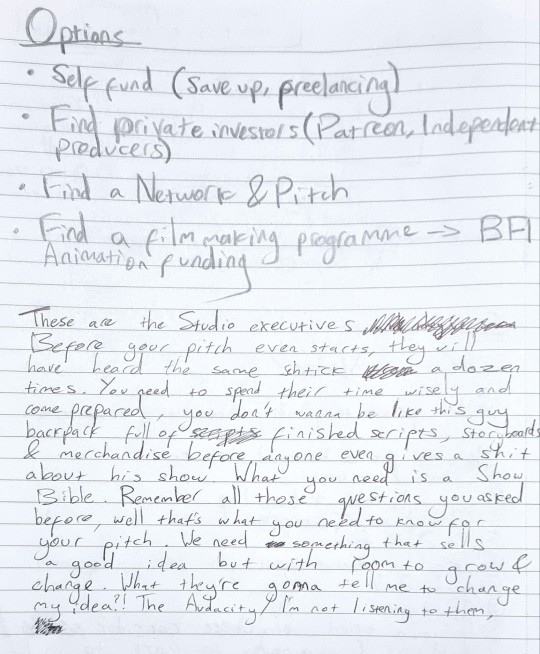 Options
• Self fund (Save up, freelancing)
• Find private investors (Patreon, Independent
producers)
• Find a Network & Pitch
• Find a film making programme -> BFI
Animation funding
These are the Studio executives
Before your pitch even starts, they will
have heard the same shtick a dozen
times. You need to spend their time wisely and
come prepared, you don't wanna be like this guy
backpack full of finished scripts, storyboards
& merchandise before anyone even gives a shit
about his show. What you need is a Show
Bible. Remember all those questions you asked
before, well that's what you need to know for
your pitch. We need something that sells
a good idea but with room to grow &
change. What they're gonna tell me to change
my idea?! The Audacity! I'm not listening to them,